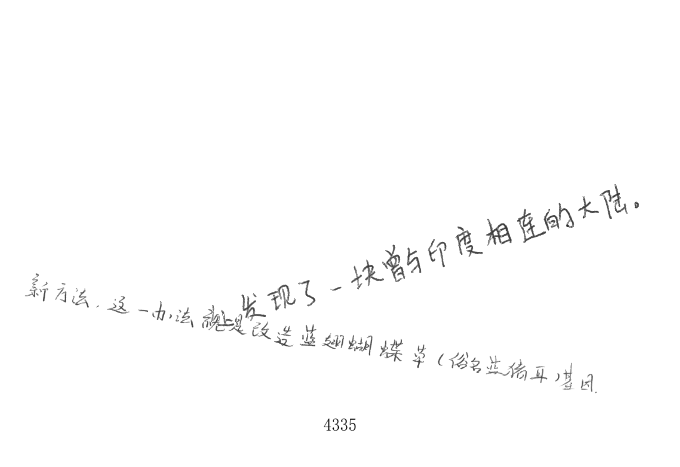 上发现了一块曾与印度相连的大陆。
新方法.这一办法就是改造蓝翅蝴蝶草(俗名蓝倩耳)基因.
4335